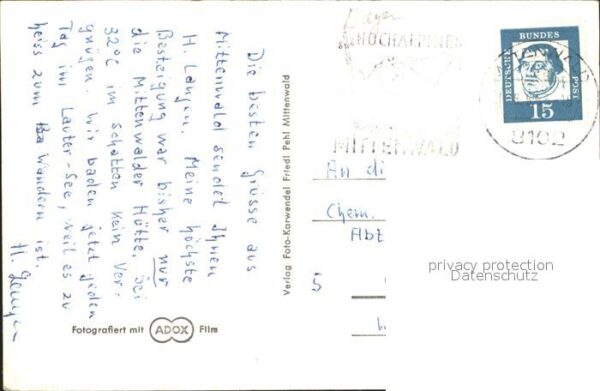 Die besten Grüsse aus
Mittenwald sendet Ihnen
H. Langen. Meine höchste
Besteigung war bisher nur
die Mittenwalder Hütte, bei
32°C im Schatten kein Ver-
gnügen. Wir baden jetzt jeden
Tag im Lauter-See, weil es zu
heiss zum Wandern ist.
Verlag Foto-Karwendel Friedl Pehl Mittenwald
Fotografiert mit ADOX Film
HOCHALPINES
MITTENWALD
DEUTSCHE
BUNDES
POST
15
MITTENWALD
8102
An di
Chem.
Abt
5
privacy protection
Datenschutz